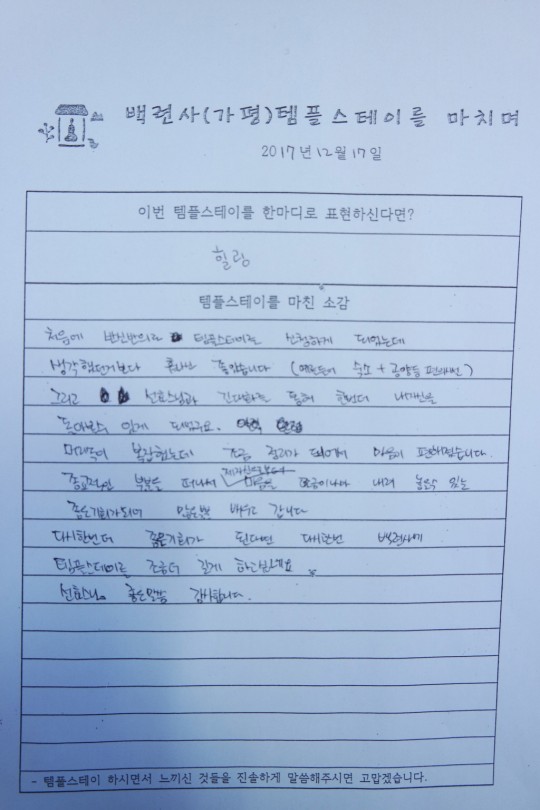 백련사(가평)템플스테이를 마치며
2017년12월17일
이번 템플스테이를 한마디로 표현하신다면?
힐링
템플스테이를 마친 소감
처음에 반신반의로 템플스테이를 신청하게 되었는데
생각했던거보다 훨씬 좋았습니다 ( 숙소 + 공양등 )
그리고 선효스님과 통해 한번더 내자신을
돌아볼수 있게 되었구요.
복잡했는데 조금 정리가 되어서 마음이 편해졌습니다.
종교적인 부분을 떠나서 마음을 조금이나마 내려 놓을수 있는
좋은기회가되어 배우고 갑니다
다시한번더 좋은기회가 된다면 다시한번 백련사에
템플스테이를 조금더 길게 하고싶네요
좋은말씀 감사합니다.
- 템플스테이 하시면서 느끼신 것들을 진솔하게 말씀해주시면 고맙겠습니다.